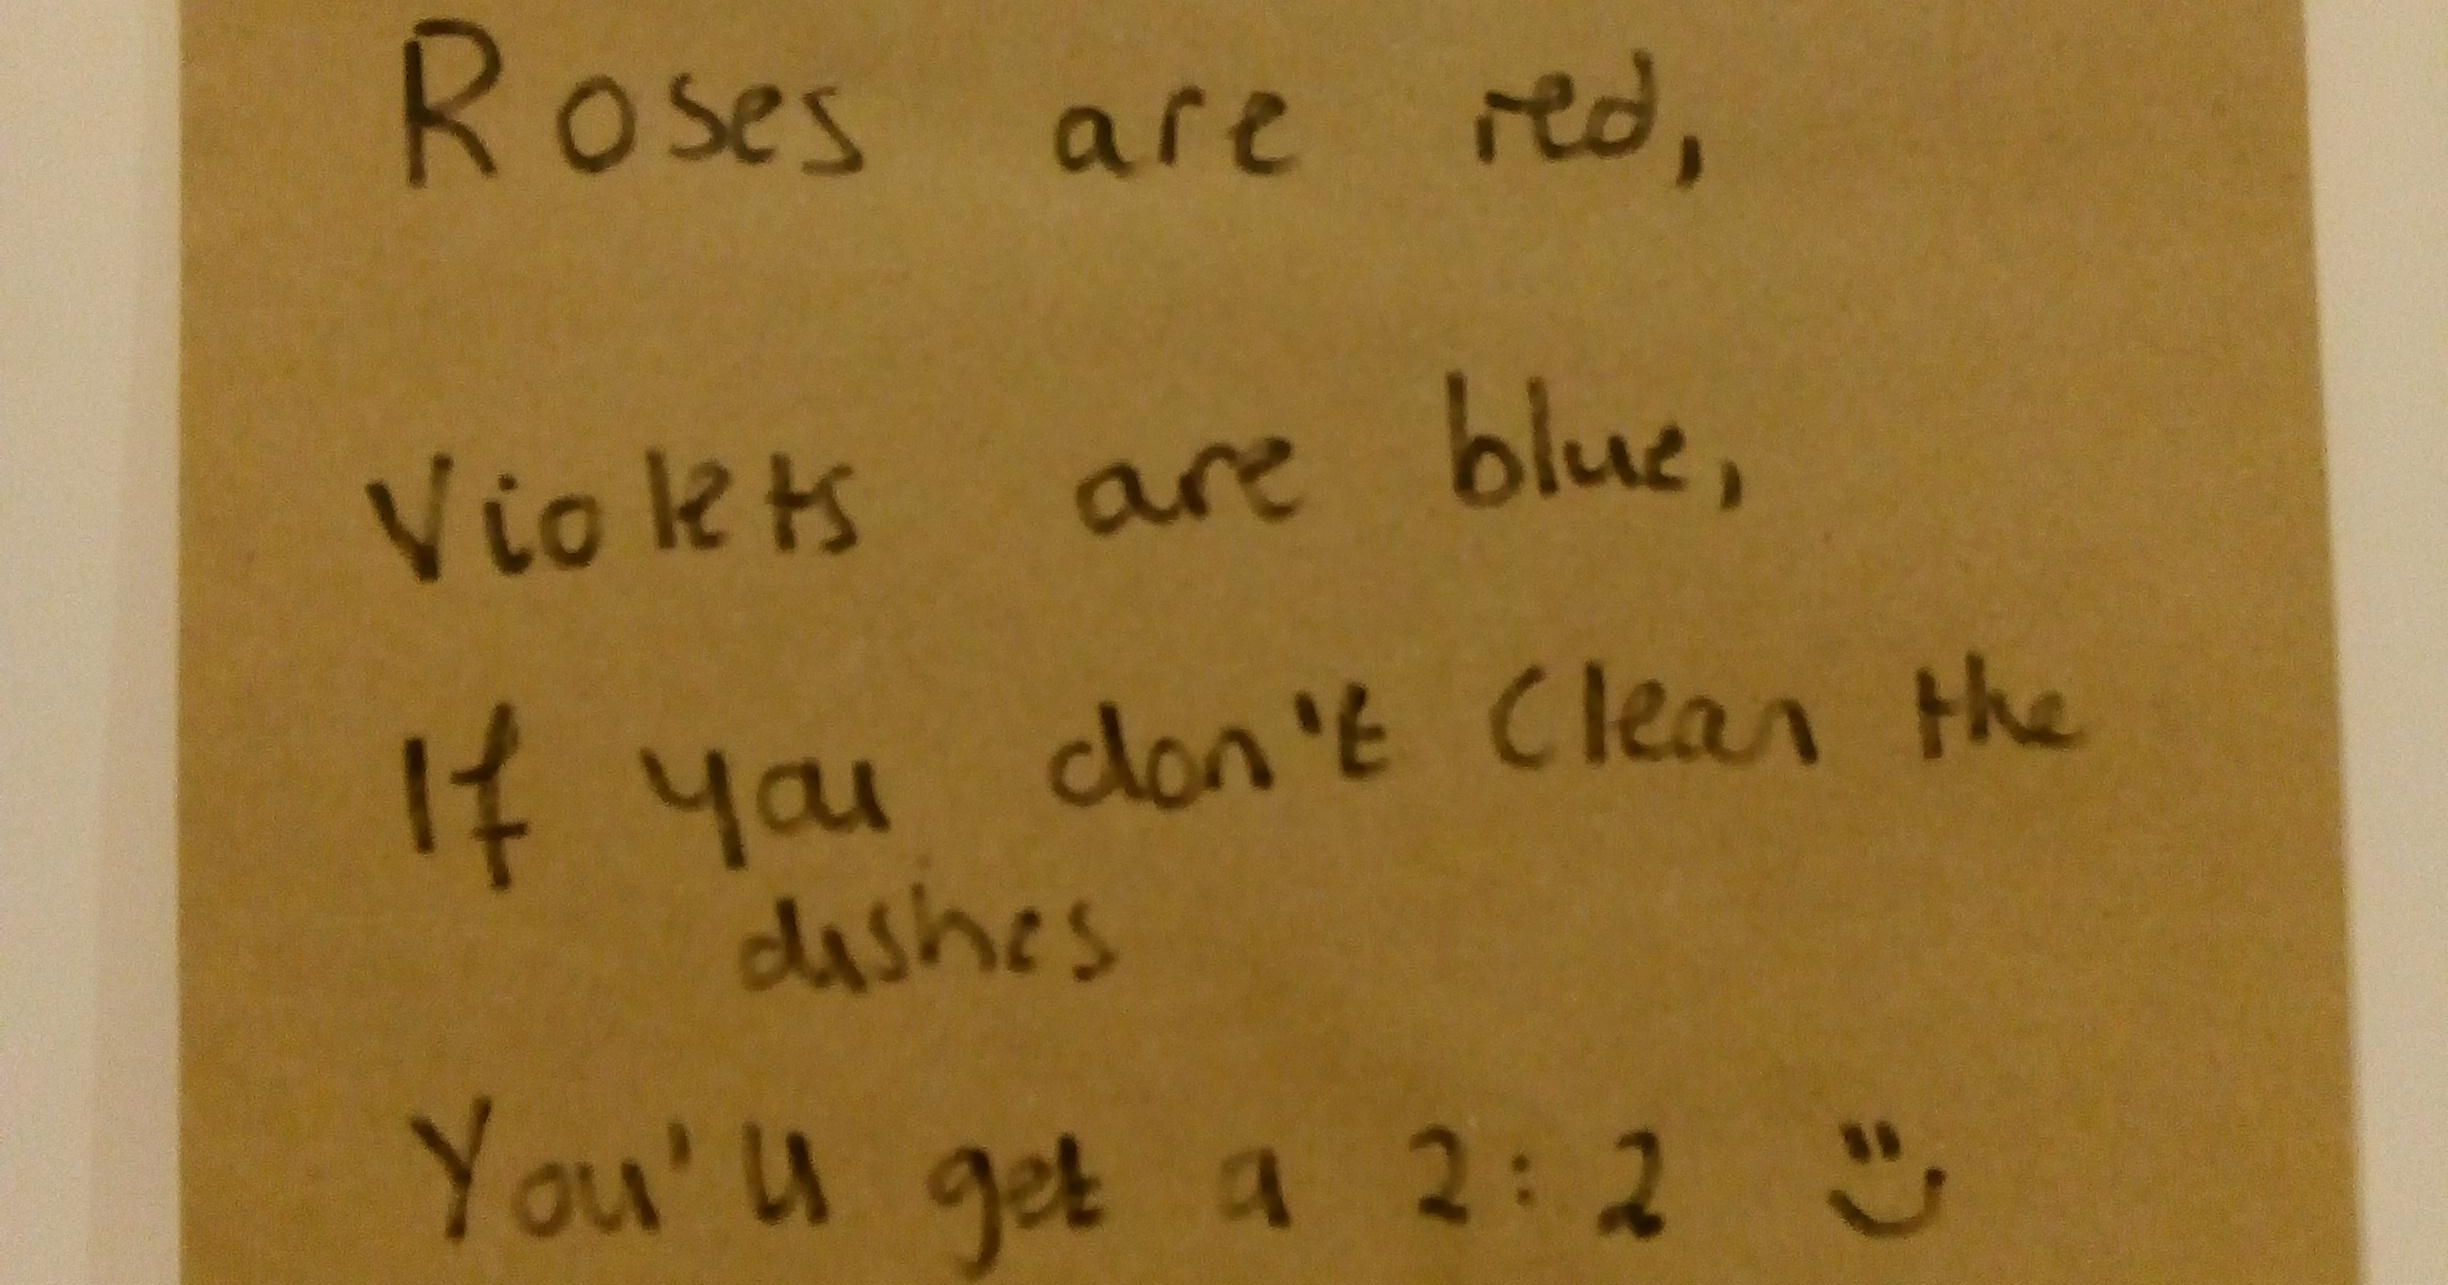 Roses are red,
Violets are blue,
If you don't clean the
dishes
You'll get a 2:2 :)